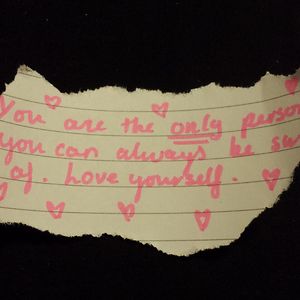 You are the only person
you can always be sure
of. Love yourself.